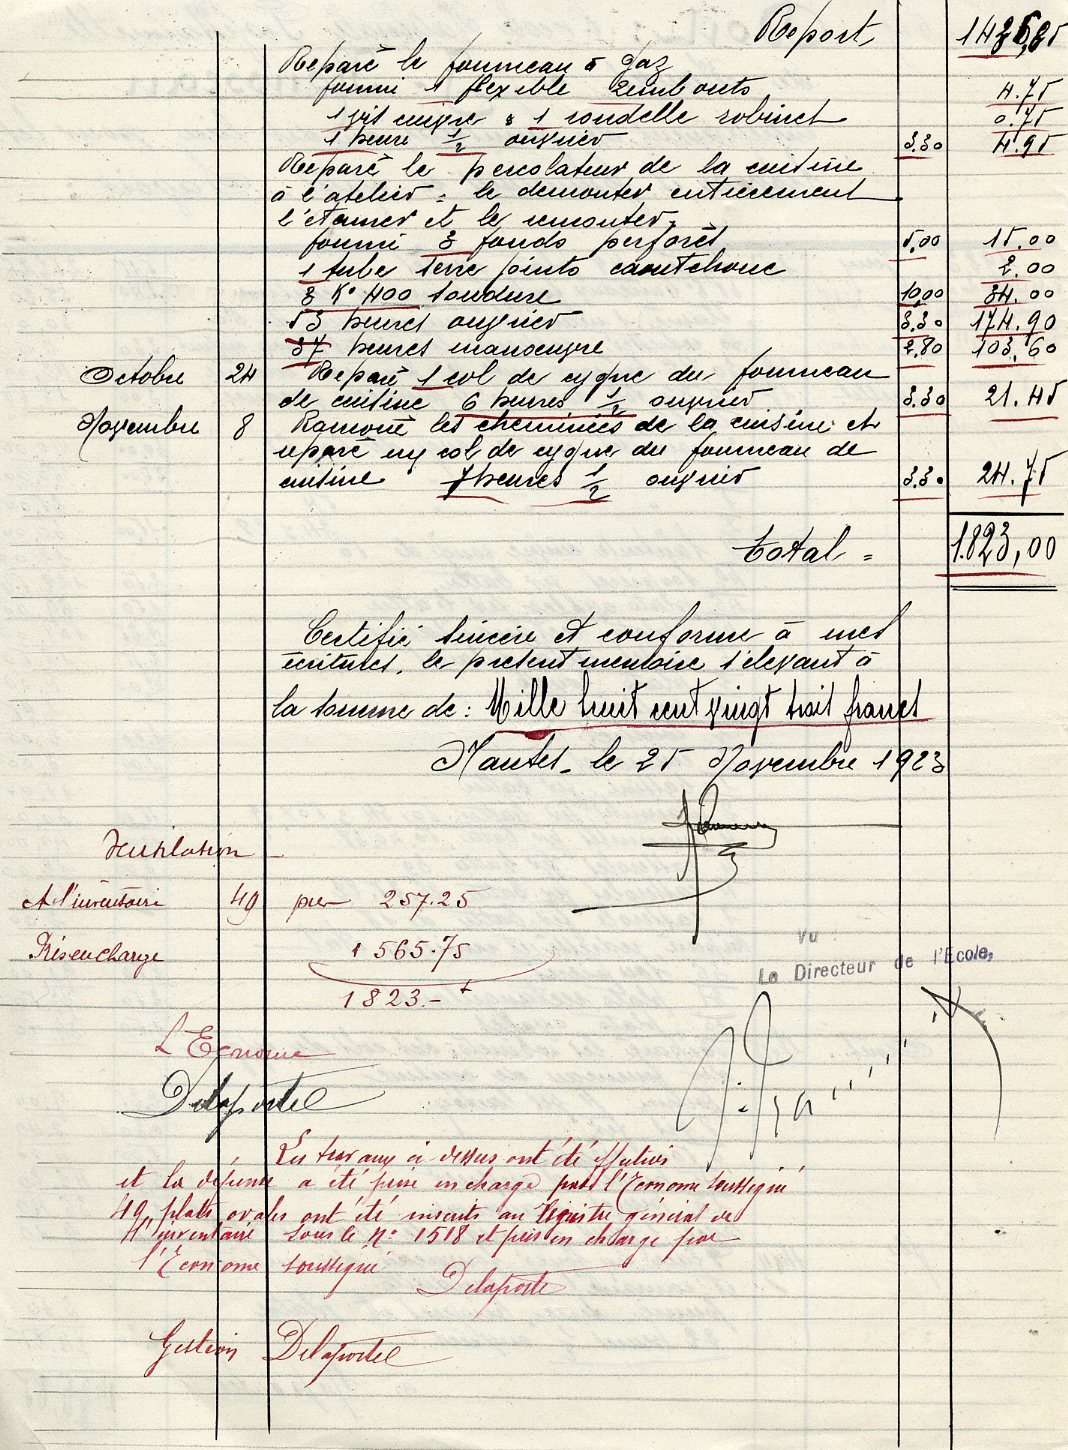 Report 1436,85
Reparé le fourneau à gaz
fourni 1 flexible 2 embouts 4.75
1 vis cuivre & 1 rondelle robinet 0.75
1 heure 1/2 ouvrier 3.30 4.95
Reparé le percolateur de la cuisine
à l'atelier = le demonter entièrement
l'étamer et le remonter,
fourni 3 fonds perforés 5,00 15.00
1 tube terre joints caoutchouc 2.00
3 K° 400 soudure 10,00 34.00
53 heures ouvrier 3.30 174.90
37 heures manoeuvre 2.80 103,60
Octobre 24 Reparé 1 col de cygne du fourneau
de cuisine 6 heures 1/2 ouvrier 3.30 21.45
Novembre 8 Ramoné les cheminées de la cuisine et
reparé un col de cygne du fourneau de
cuisine 7 heures 1/2 ouvrier 3.30 24.75
Total = 1.823,00
Certifié sincère et conforme à mes
écritures, le présent memoire s'elevant à
la somme de : Mille huit cent vingt trois francs
Nantes, le 25 Novembre 1923
Ventilation
A l'inventaire 49 pour 257.25
Pris en charge 1565.75
1823.-
L'Econome
Delaporte
Vu
Le Directeur de l'Ecole,
Les travaux ci-dessus ont été effectués
et la dépense a été prise en charge par l'Econome soussigné
49 plats ovales ont été inscrits au registre général de
l'inventaire sous le N° 1518 et pris en charge par
l'Econome soussigné
Delaporte
Gestion Delaporte